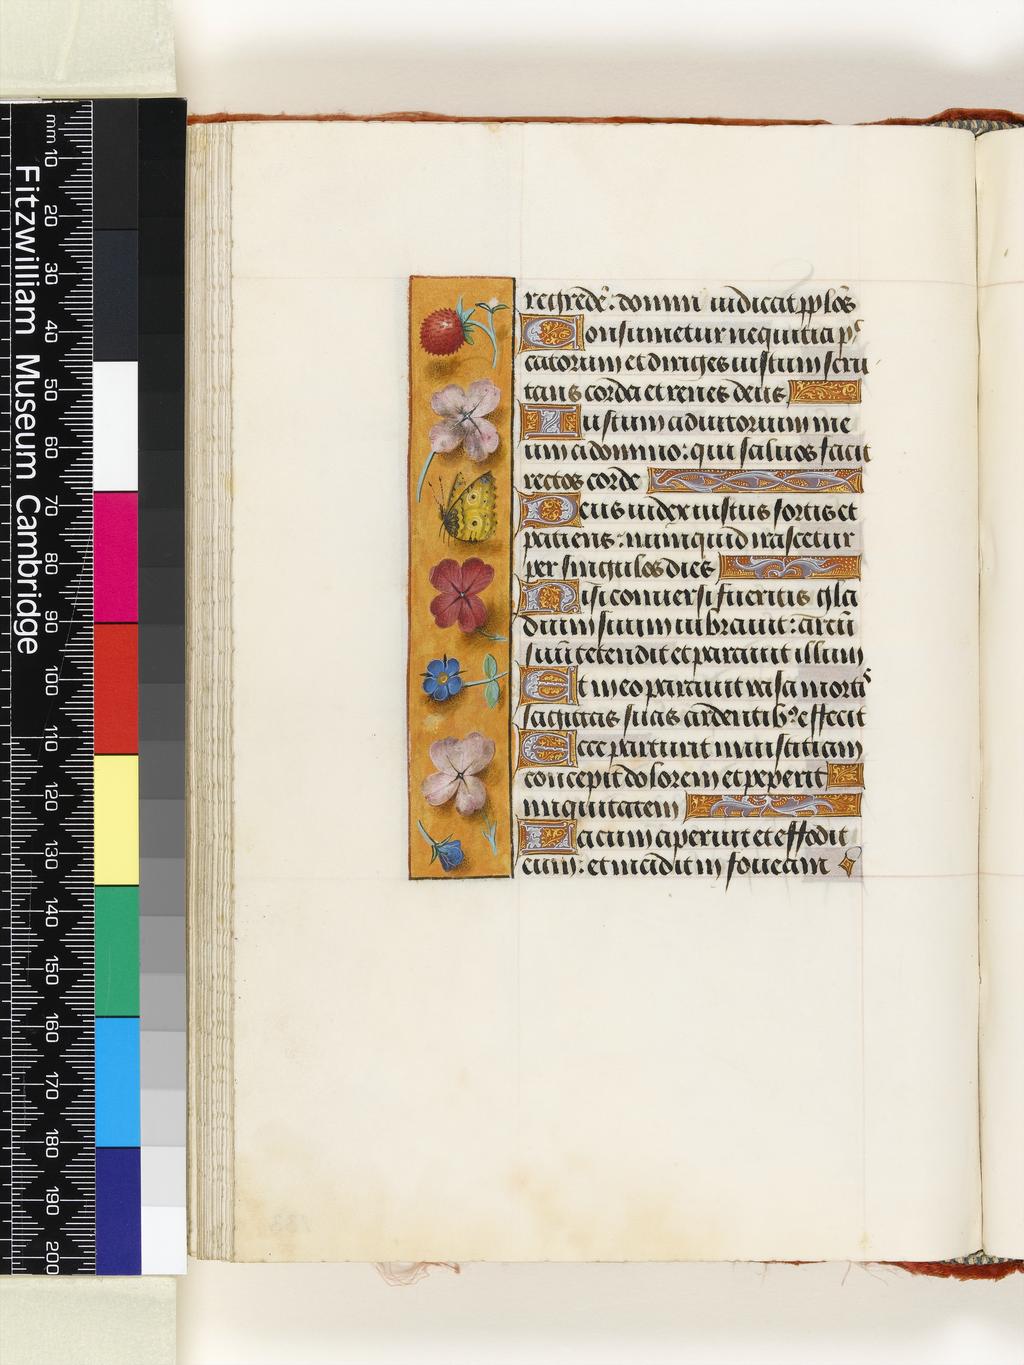 regrede: domin iudicat pplōs
Consumetur nequitia pc̄
catorum et diriges iustum scru
tans corda et renes deus
Iustum adiutorium me
um a domino: qui saluos facit
rectos corde
Deus iudex iustus fortis et
patiens: numquid irascetur
per singulos dies
Nisi conuersi fueritis gla
dium suum uibrauit: arcū
suū tetendit et parauit illum
Et in eo parauit uasa mortꝭ
sagittas suas ardentibꝰ effecit
Ecce parturit iniustitiam
concepit dolorem et peperit
iniquitatem
Lacum aperuit et effodit
eum: et incidit in foueam
Fitzwilliam Museum Cambridge
mm 10 20 30 40 50 60 70 80 90 100 110 120 130 140 150 160 170 180 190 200